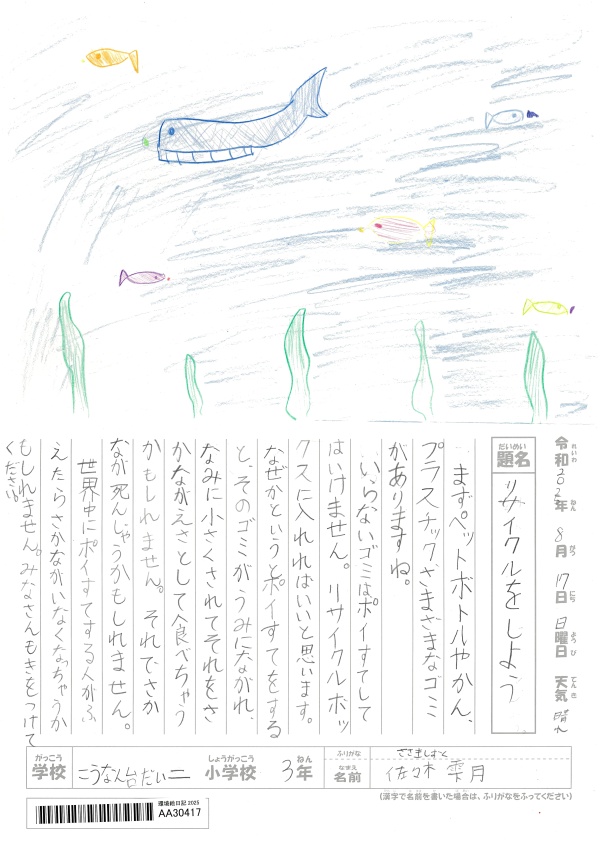 令和2025年 8月17日 日曜日 天気 晴れ
れいわ ねん がつ にち ようび てんき
だいめい
題名 リサイクルをしよう
まずペットボトルやかん、
プラスチックざまざまなゴミ
がありますね。
いらないゴミはポイすてして
はいけません。リサイクルボッ
クスに入れればいいと思います。
なぜかというとポイすてをする
と、そのゴミがうみにながれ、
なみに小さくされてそれをさ
かながえさとして食べちゃう
かもしれません。それでさか
なが死んじゃうかもしれません。
世界中にポイすてする人がふ
えたらさかながいなくなっちゃうか
もしれません。みなさんもきをつけて
ください。
がっこう しょうがっこう ねん
学校 こうなん台だい二 小学校 3年
ふりがな ささきしずく
なまえ
名前 佐々木 雫月
(漢字で名前を書いた場合は、ふりがなをふってください)
環境絵日記 2025
AA30417